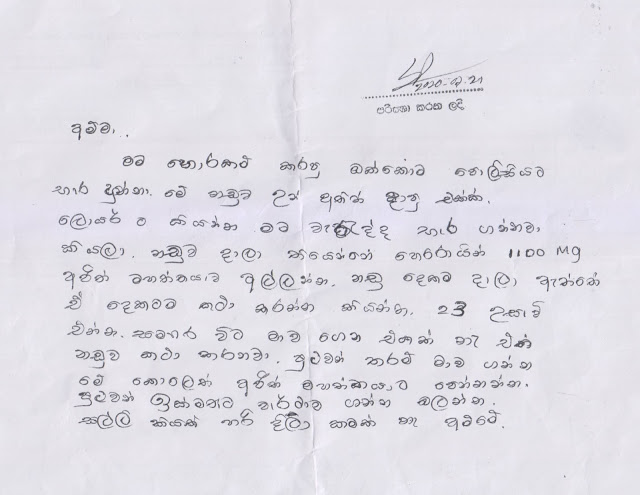 2020-12-21
පරීක්ෂා කරන ලදි
අම්මා..
මම හොරකම් කරපු ඔක්කොම පොලීසියට
භාර දුන්නා. මේ නඩුව උන් අතින් දාපු එකක්.
ලොයර් ට කියන්න මට වැරැද්ද භාර ගන්නවා
කියලා. නඩුව දාලා තියෙන්නේ හෙරොයින් 1100 Mg
අජිත් මහත්තයාව අල්ලන්න. නඩු දෙකම දාලා ඇත්තේ
ඒ දෙකටම කථා කරන්න කියන්න. 23 උසාවි
එන්න. සමහර විට මාව ගෙන එකක් නෑ එත්
නඩුව කථා කරනවා. පුලුවන් තරම් මාව ගන්න
මේ කොලෙත් අජිත් මහත්තයාට පෙන්නන්න.
පුලුවන් ඉක්මනට වැඩේට ගන්න බලන්න.
සල්ලි කීයක් හරි දීලා කමක් නෑ අම්මේ.